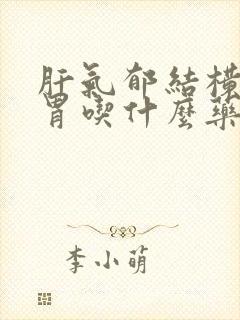 肝氣郁結橫
胃喫什麼藥
李小萌